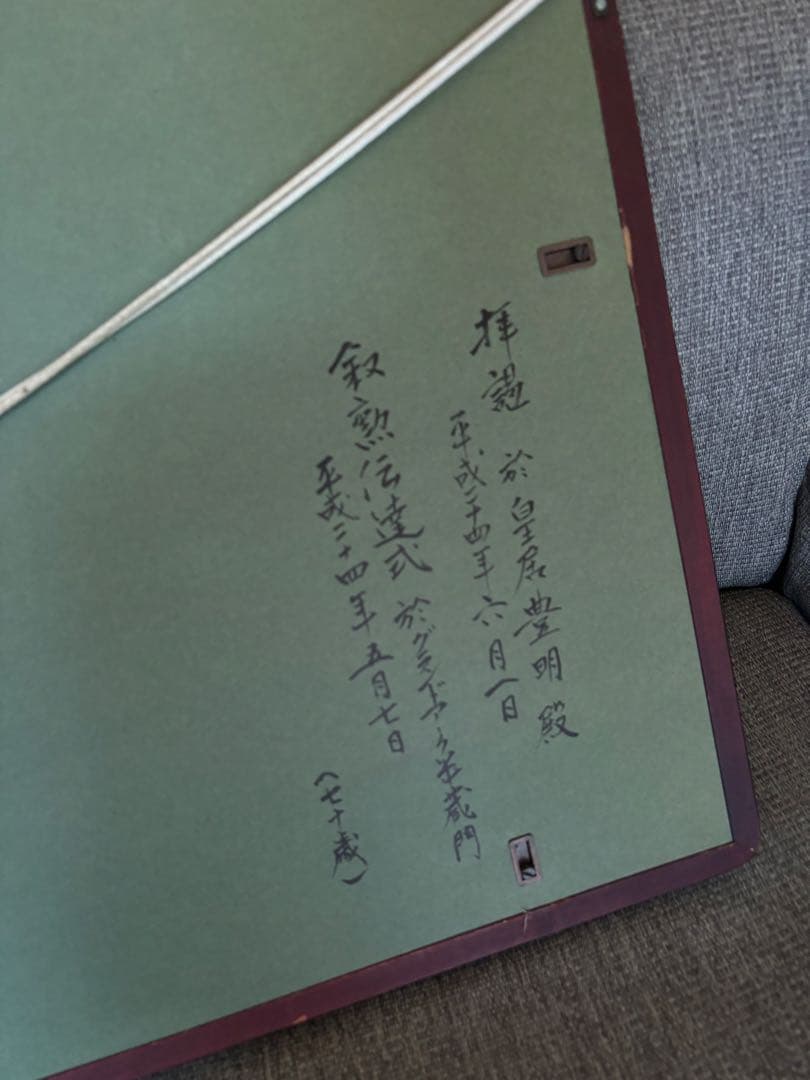 拝謁 於皇居豊明殿
平成二十四年六月一日
叙勲伝達式 於グランドアーク半蔵門
平成二十四年五月七日
(七十歳)